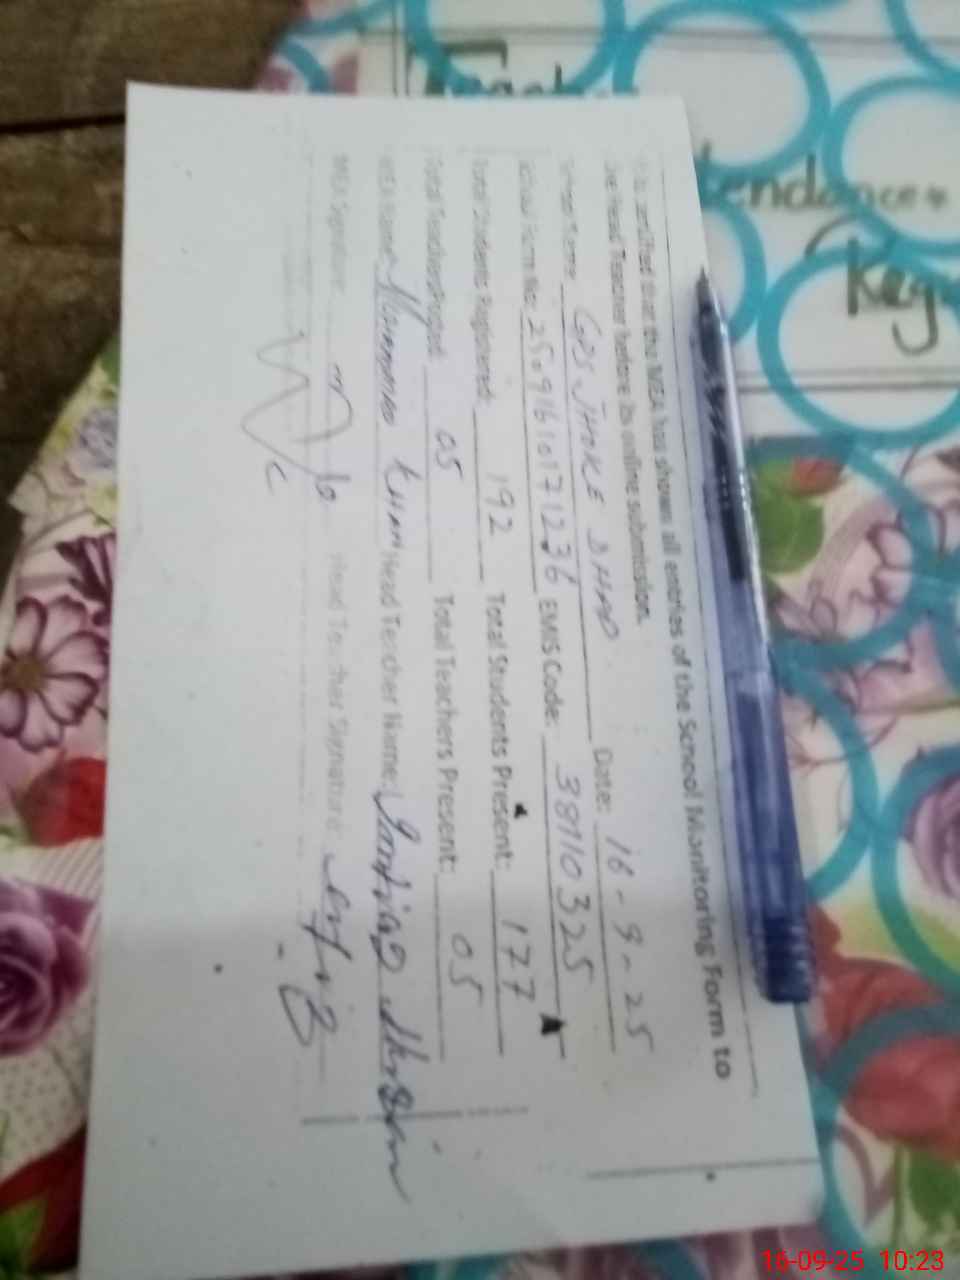 It is certified that the MEA has shown all entries of the School Monitoring Form to
the Head Teacher before its online submission.
School Name: GPS JHOKE DHAD Date: 16-9-25
School Form No: 25091610171236 EMIS Code: 38110325
Total Students Registered: 192 Total Students Present: 177
Total Teachers Posted: 05 Total Teachers Present: 05
MEA Name: Muhammad Head Teacher Name:
MEA Signature: Head Teacher Signature:
tendance
16-09-25 10:23